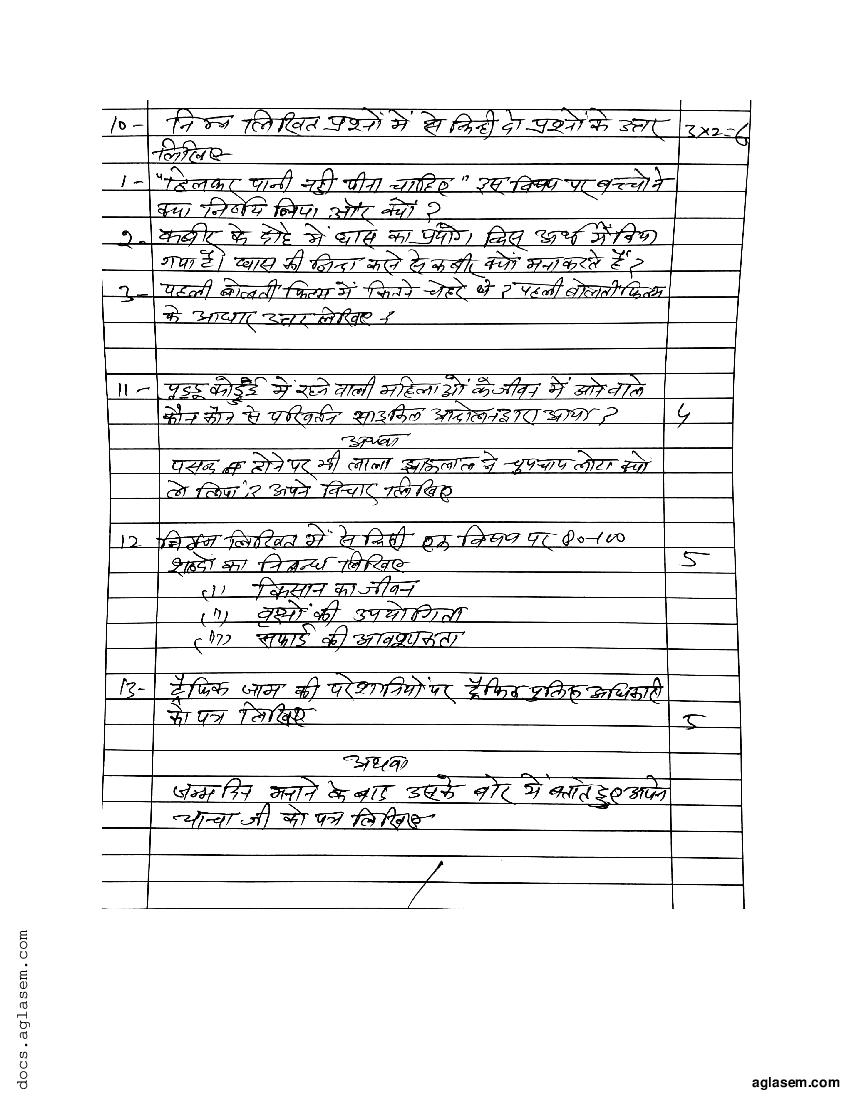 10- निम्न लिखित प्रश्नों में से किन्ही दो प्रश्नों के उत्तर 3×2=6
लिखिए
1- "हिलकर पानी नही पीना चाहिए" इस विषय पर बच्चो ने
क्या निर्णय लिया और क्यों ?
2- कबीर के दोहे में घास का प्रयोग किस अर्थ में किया
गया है। घास की निन्दा करने से कबीर क्यों मना करते हैं ?
3- पहली बोलती फिल्म में कितने चेहरे थे ? पहली बोलती फिल्म
के आधार उत्तर लिखिए ?
11- पुडुकोट्टई में रहने वाली महिलाओं के जीवन में आने वाले
कौन कौन से परिवर्तन साइकिल आंदोलन द्वारा आया ? 4
अथवा
पसन्द न होने पर भी लाला झाऊलाल ने चुपचाप लोटा क्यो
ले लिया ? अपने विचार लिखिए
12 निम्न लिखित में से किसी एक विषय पर 80-100
शब्दो का निबन्ध लिखिए 5
(i) किसान का जीवन
(ii) वृक्षों की उपयोगिता
(iii) सफाई की आवश्यकता
13- ट्रैफिक जाम की परेशानियों पर ट्रैफिक पुलिस अधिकारी
को पत्र लिखिए 5
अथवा
जन्म दिन मनाने के बाद उसके बारे में बताते हुए अपने
चाचा जी को पत्र लिखिए
docs.aglasem.com
aglasem.com